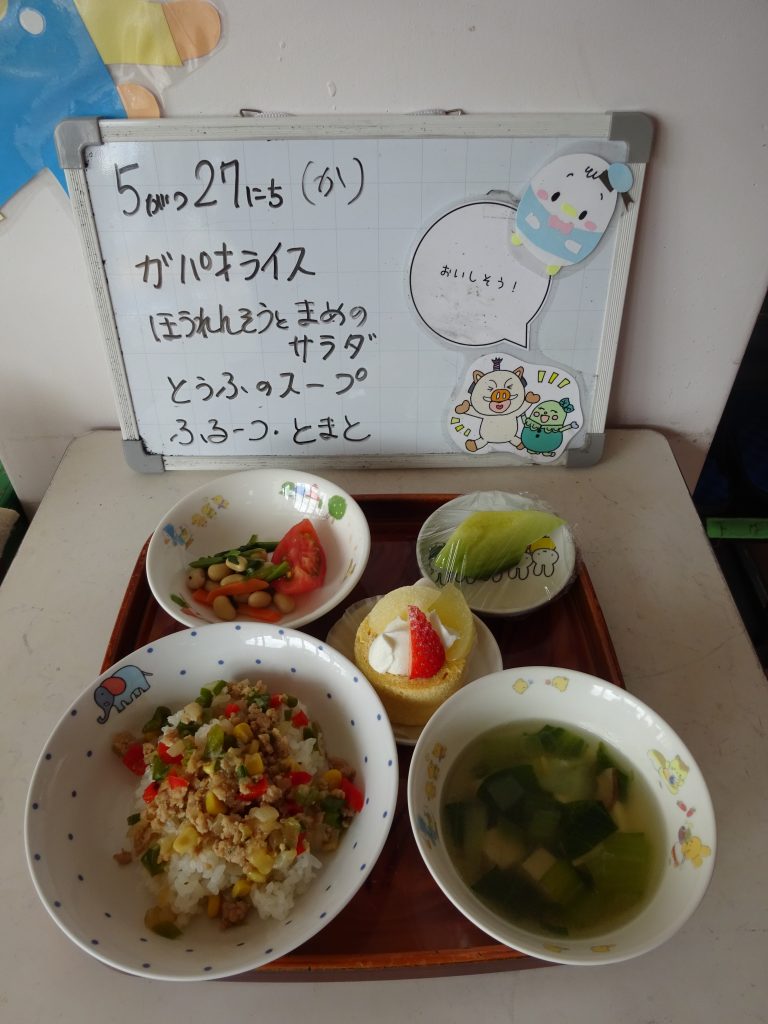 5がつ27にち (か)
ガパオライス
ほうれんそうと まめの
サラダ
とうふのスープ
ふるーつ・とまと
おいしそう!